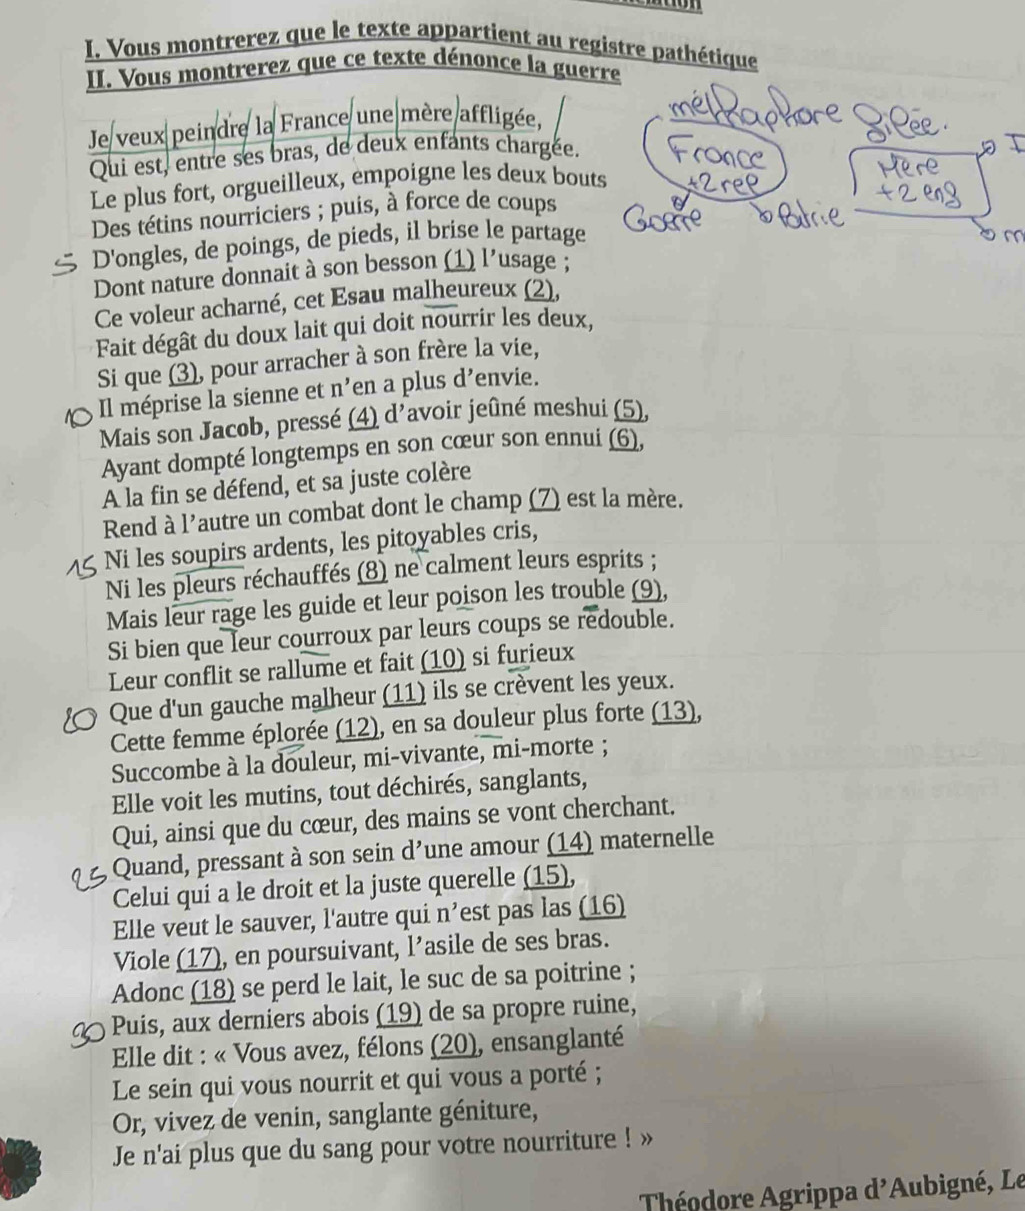 I. Vous montrerez que le texte appartient au registre pathétique
II. Vous montrerez que ce texte dénonce la guerre
Je veux peindre la France une mère affligée,
Qui est, entre ses bras, de deux enfants chargée.
Le plus fort, orgueilleux, empoigne les deux bouts
Des tétins nourriciers ; puis, à force de coups
5 D'ongles, de poings, de pieds, il brise le partage
Dont nature donnait à son besson (1) l'usage ;
Ce voleur acharné, cet Esau malheureux (2),
Fait dégât du doux lait qui doit nourrir les deux,
Si que (3), pour arracher à son frère la vie,
10 Il méprise la sienne et n'en a plus d'envie.
Mais son Jacob, pressé (4) d'avoir jeûné meshui (5),
Ayant dompté longtemps en son cœur son ennui (6),
A la fin se défend, et sa juste colère
Rend à l'autre un combat dont le champ (7) est la mère.
15 Ni les soupirs ardents, les pitoyables cris,
Ni les pleurs réchauffés (8) ne calment leurs esprits ;
Mais leur rage les guide et leur poison les trouble (9),
Si bien que leur courroux par leurs coups se redouble.
Leur conflit se rallume et fait (10) si furieux
20 Que d'un gauche malheur (11) ils se crèvent les yeux.
Cette femme éplorée (12), en sa douleur plus forte (13),
Succombe à la douleur, mi-vivante, mi-morte ;
Elle voit les mutins, tout déchirés, sanglants,
Qui, ainsi que du cœur, des mains se vont cherchant.
25 Quand, pressant à son sein d'une amour (14) maternelle
Celui qui a le droit et la juste querelle (15),
Elle veut le sauver, l'autre qui n'est pas las (16)
Viole (17), en poursuivant, l'asile de ses bras.
Adonc (18) se perd le lait, le suc de sa poitrine ;
30 Puis, aux derniers abois (19) de sa propre ruine,
Elle dit : « Vous avez, félons (20), ensanglanté
Le sein qui vous nourrit et qui vous a porté ;
Or, vivez de venin, sanglante géniture,
Je n'ai plus que du sang pour votre nourriture ! »
Théodore Agrippa d'Aubigné, Le
France
+2 rel
Guerre
Patrie
Mère
+2 enf